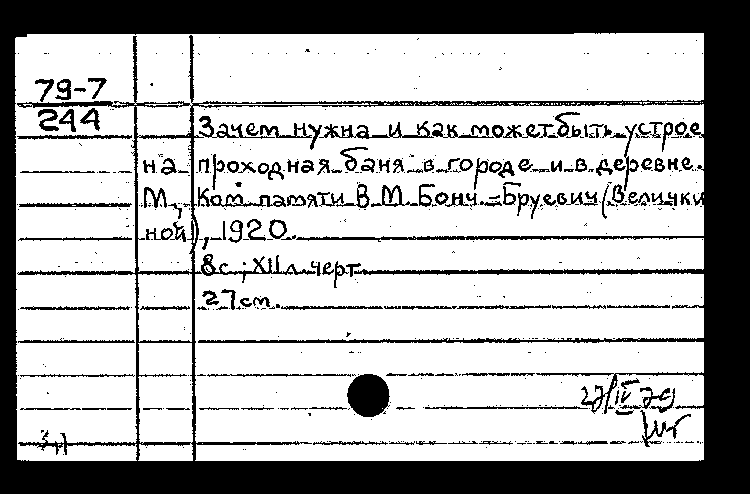 79-7
244
Зачем нужна и как может быть устрое
на проходная баня в городе и в деревне.
М., Ком. памяти В.М. Бонч.=Бруевич (Велички
ной), 1920.
8с.; XII л. черт.
27см.